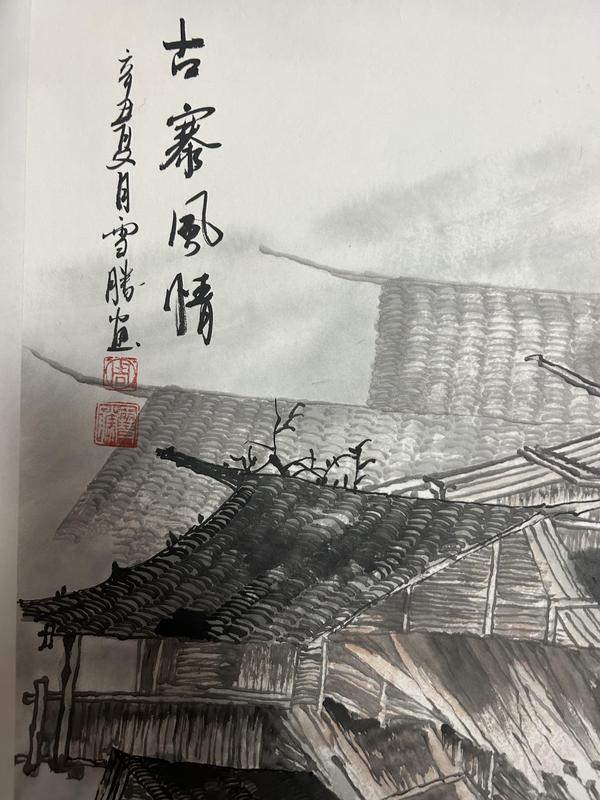 古寨風情
辛丑夏月雪勝畫